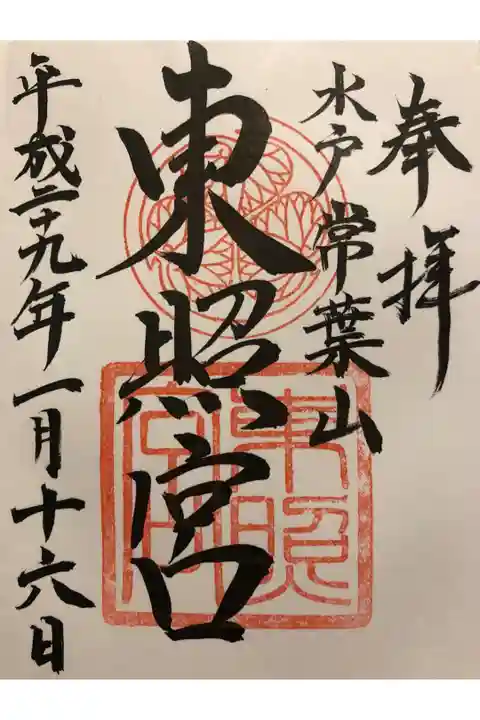 奉拝
水戸常葉山
東照宮
東照宮印
平成二十九年一月十六日